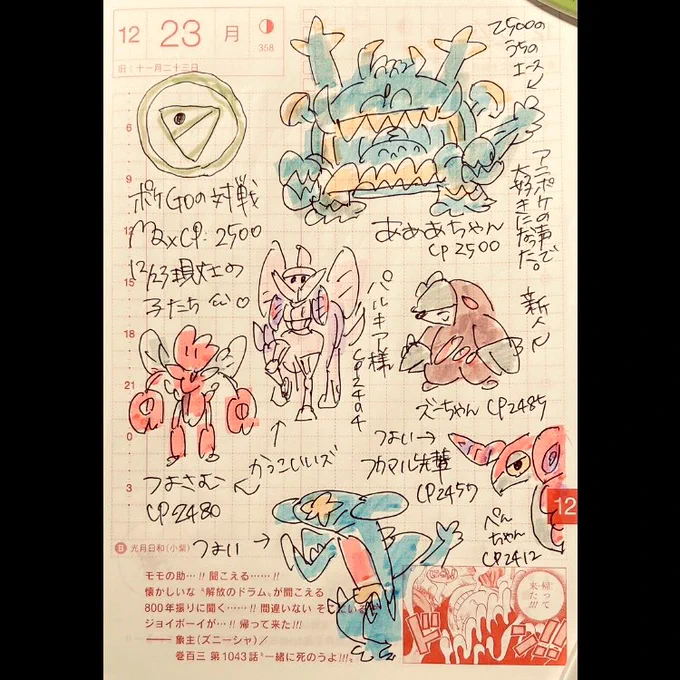 12 23 月
358
旧:十一月二十三日
6
9
12
15
18
21
0
3
ポケGOの対戦
MaxCP:2500
12/23現在の
子たち
2500の
うちの
エース
あぁあちゃん
CP2500
アニポケの声で
大好きになった。
新人
パルキア様
CP2494
ズーちゃん CP2485
かっこいいズ
つよさむ
CP2480
つよい→
フカマル先輩
CP2457
ぺん
ちゃん
CP2412
つよい→
12
光月日和(小紫)
モモの助…!! 聞こえる……!!
懐かしいな〝解放のドラム〟が聞こえる
800年振りに聞く……!! 間違いない そこにいる
ジョイボーイが…!! 帰って来た!!!
―― 象主(ズニーシャ)/
巻百三 第1043話〝一緒に死のうよ!!!〟
帰って
来た!!!
ドン!!